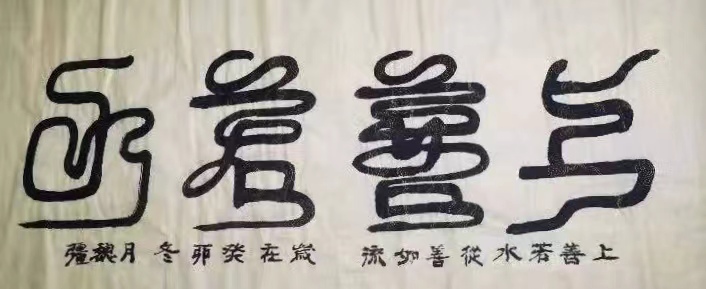 上善若水
上善若水從善如流 嵗在癸卯冬月魏疆